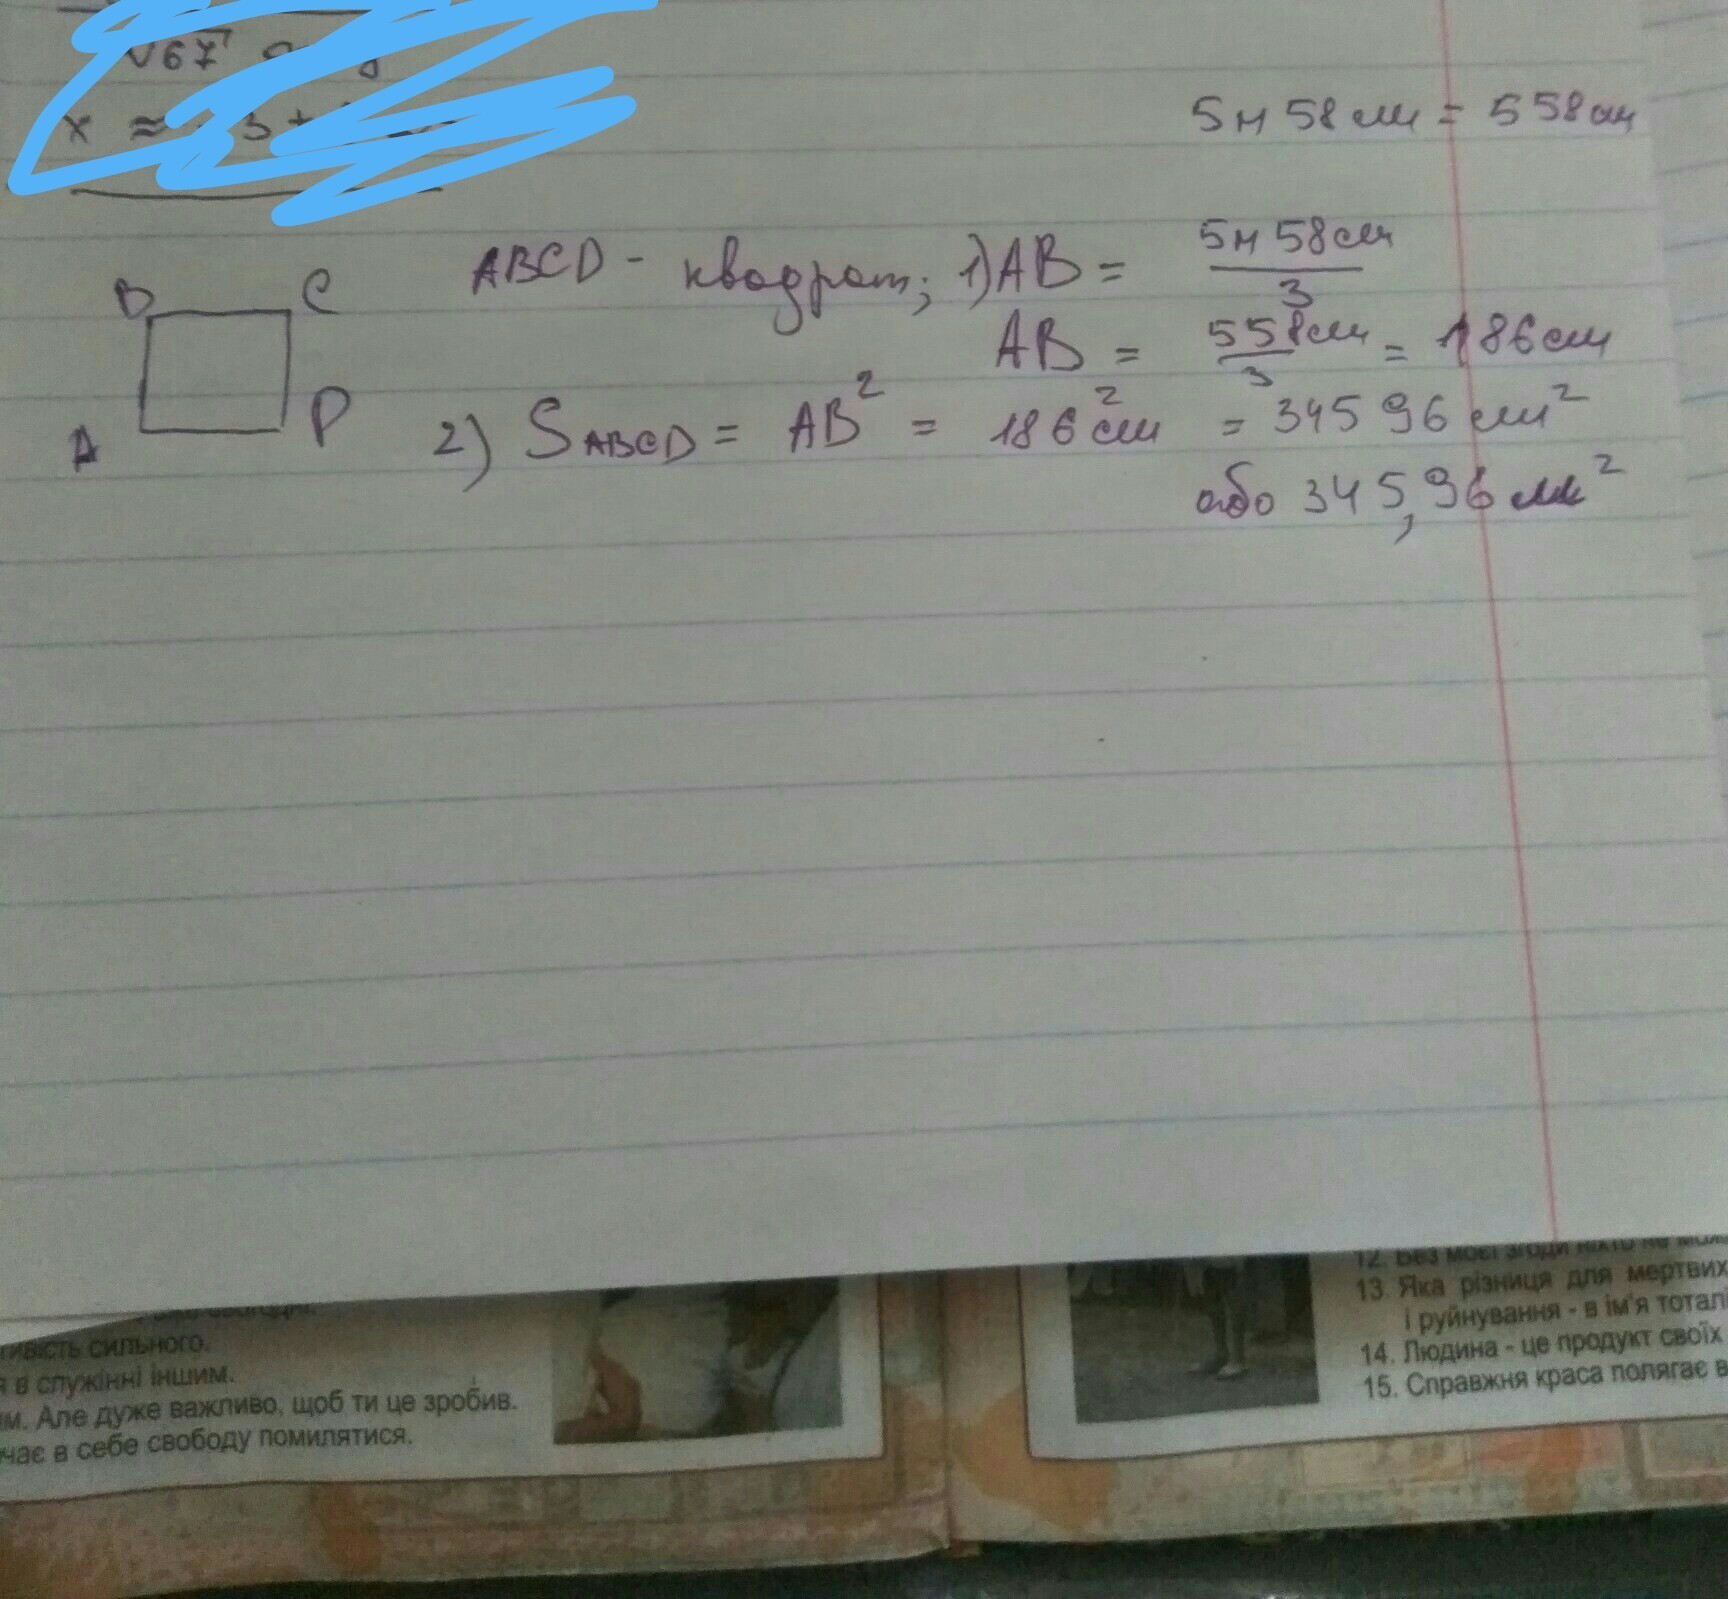 √67
x ≈
5м 58 см = 558см
ABCD - квадрат; 1) AB = 5м 58см / 3
B C
AB = 558см / 3 = 186см
A P
2) S ABCD = AB² = 186²см = 34596 см²
або 345,96 мм²
12. Без моєї згоди ніхто не
13. Яка різниця для мертвих
і руйнування - в ім'я тоталі
14. Людина - це продукт своїх
15. Справжня краса полягає в
тивість сильного.
я в служінні іншим.
им. Але дуже важливо, щоб ти це зробив.
чає в себе свободу помилятися.